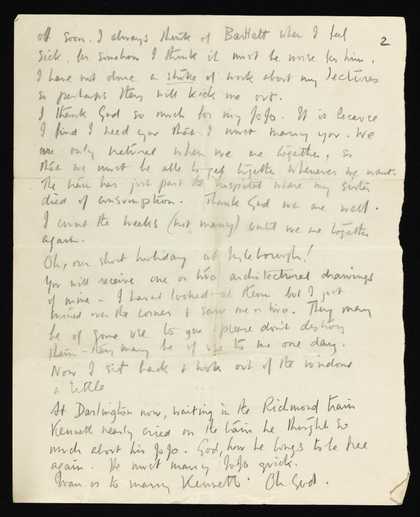 2
of soon. I always think of Bartlett when I feel
sick, for somehow I think it must be worse for him.
I have not done a stroke of work about my lectures
so perhaps they will kick me out.
I thank God so much for my JoJo. It is because
I find I need you that I must marry you. We
are only natural when we are together, so
that we must be able to get together whenever we want.
The train has just past the hospital where my sister
died of consumption. Thank God we are well.
I count the weeks (not many) until we are together
again.
Oh, our short holiday at
You will receive one or two architectural drawings
of mine - I haven't looked at them but I just
turned over the corner & saw one or two. They may
be of some use to you - please don't destroy
them - they may be of use to me one day.
Now I sit back & look out of the window
a little
At Darlington now, waiting in the Richmond train
Kennett nearly cried on the train he thought so
much about his JoJo. God, how he longs to be free
again. He must marry JoJo quick.
is to marry Kennett. Oh God.